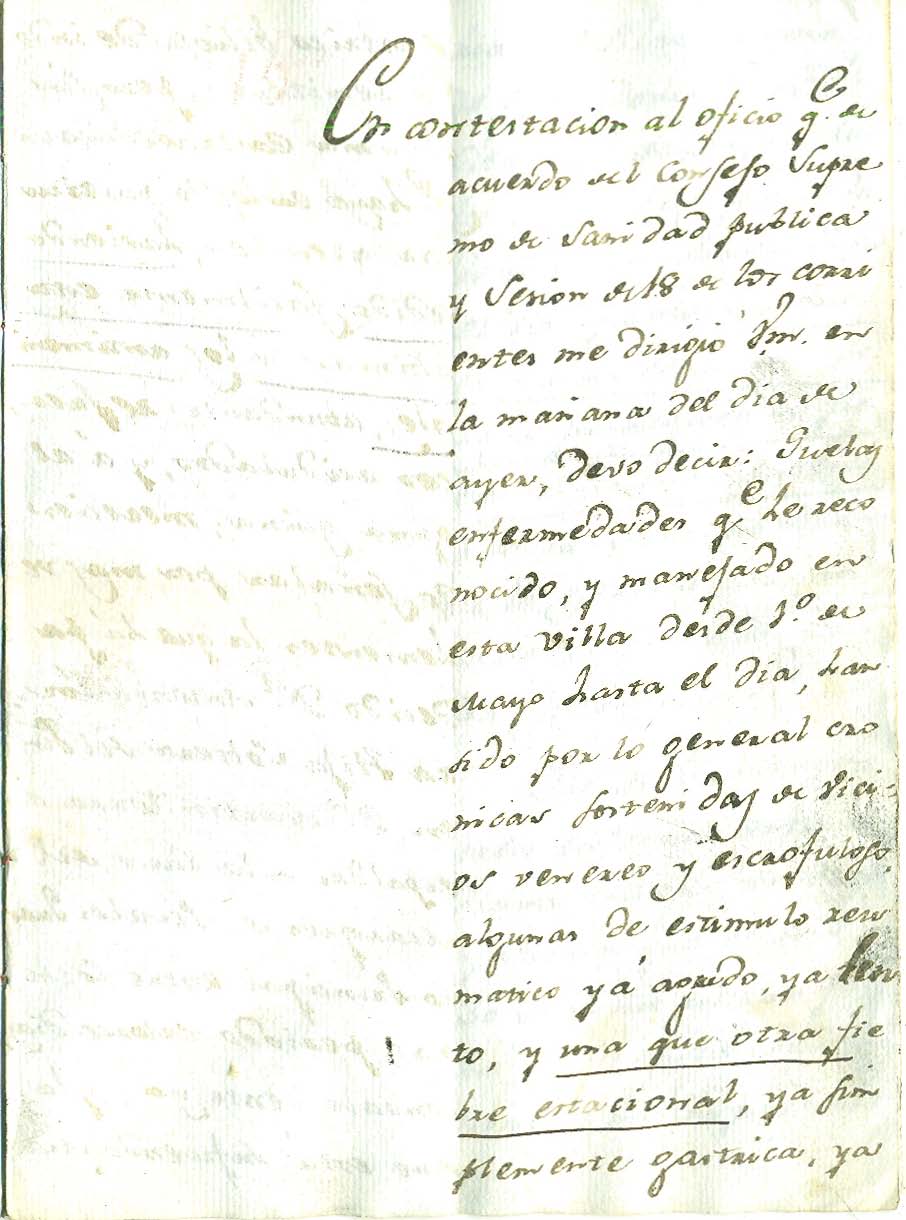 En contestacion al oficio q.e de
acuerdo del Consejo Supre
mo de Sanidad publica
y Sesion del 18 de los corri
entes me dirigió Vm. en
la mañana del dia de
ayer, devo decir: Que las
enfermedades q.e he reco
nocido, y manejado en
esta villa desde 1.o de
Mayo hasta el dia, han
sido por lo general cro
nicas sostenidas de vici-
os venereo y escrofuloso,
algunas de estimulo reu
matico ya agudo, ya len
to, y una que otra fie
bre estacional, ya sim
plemente gastrica, ya